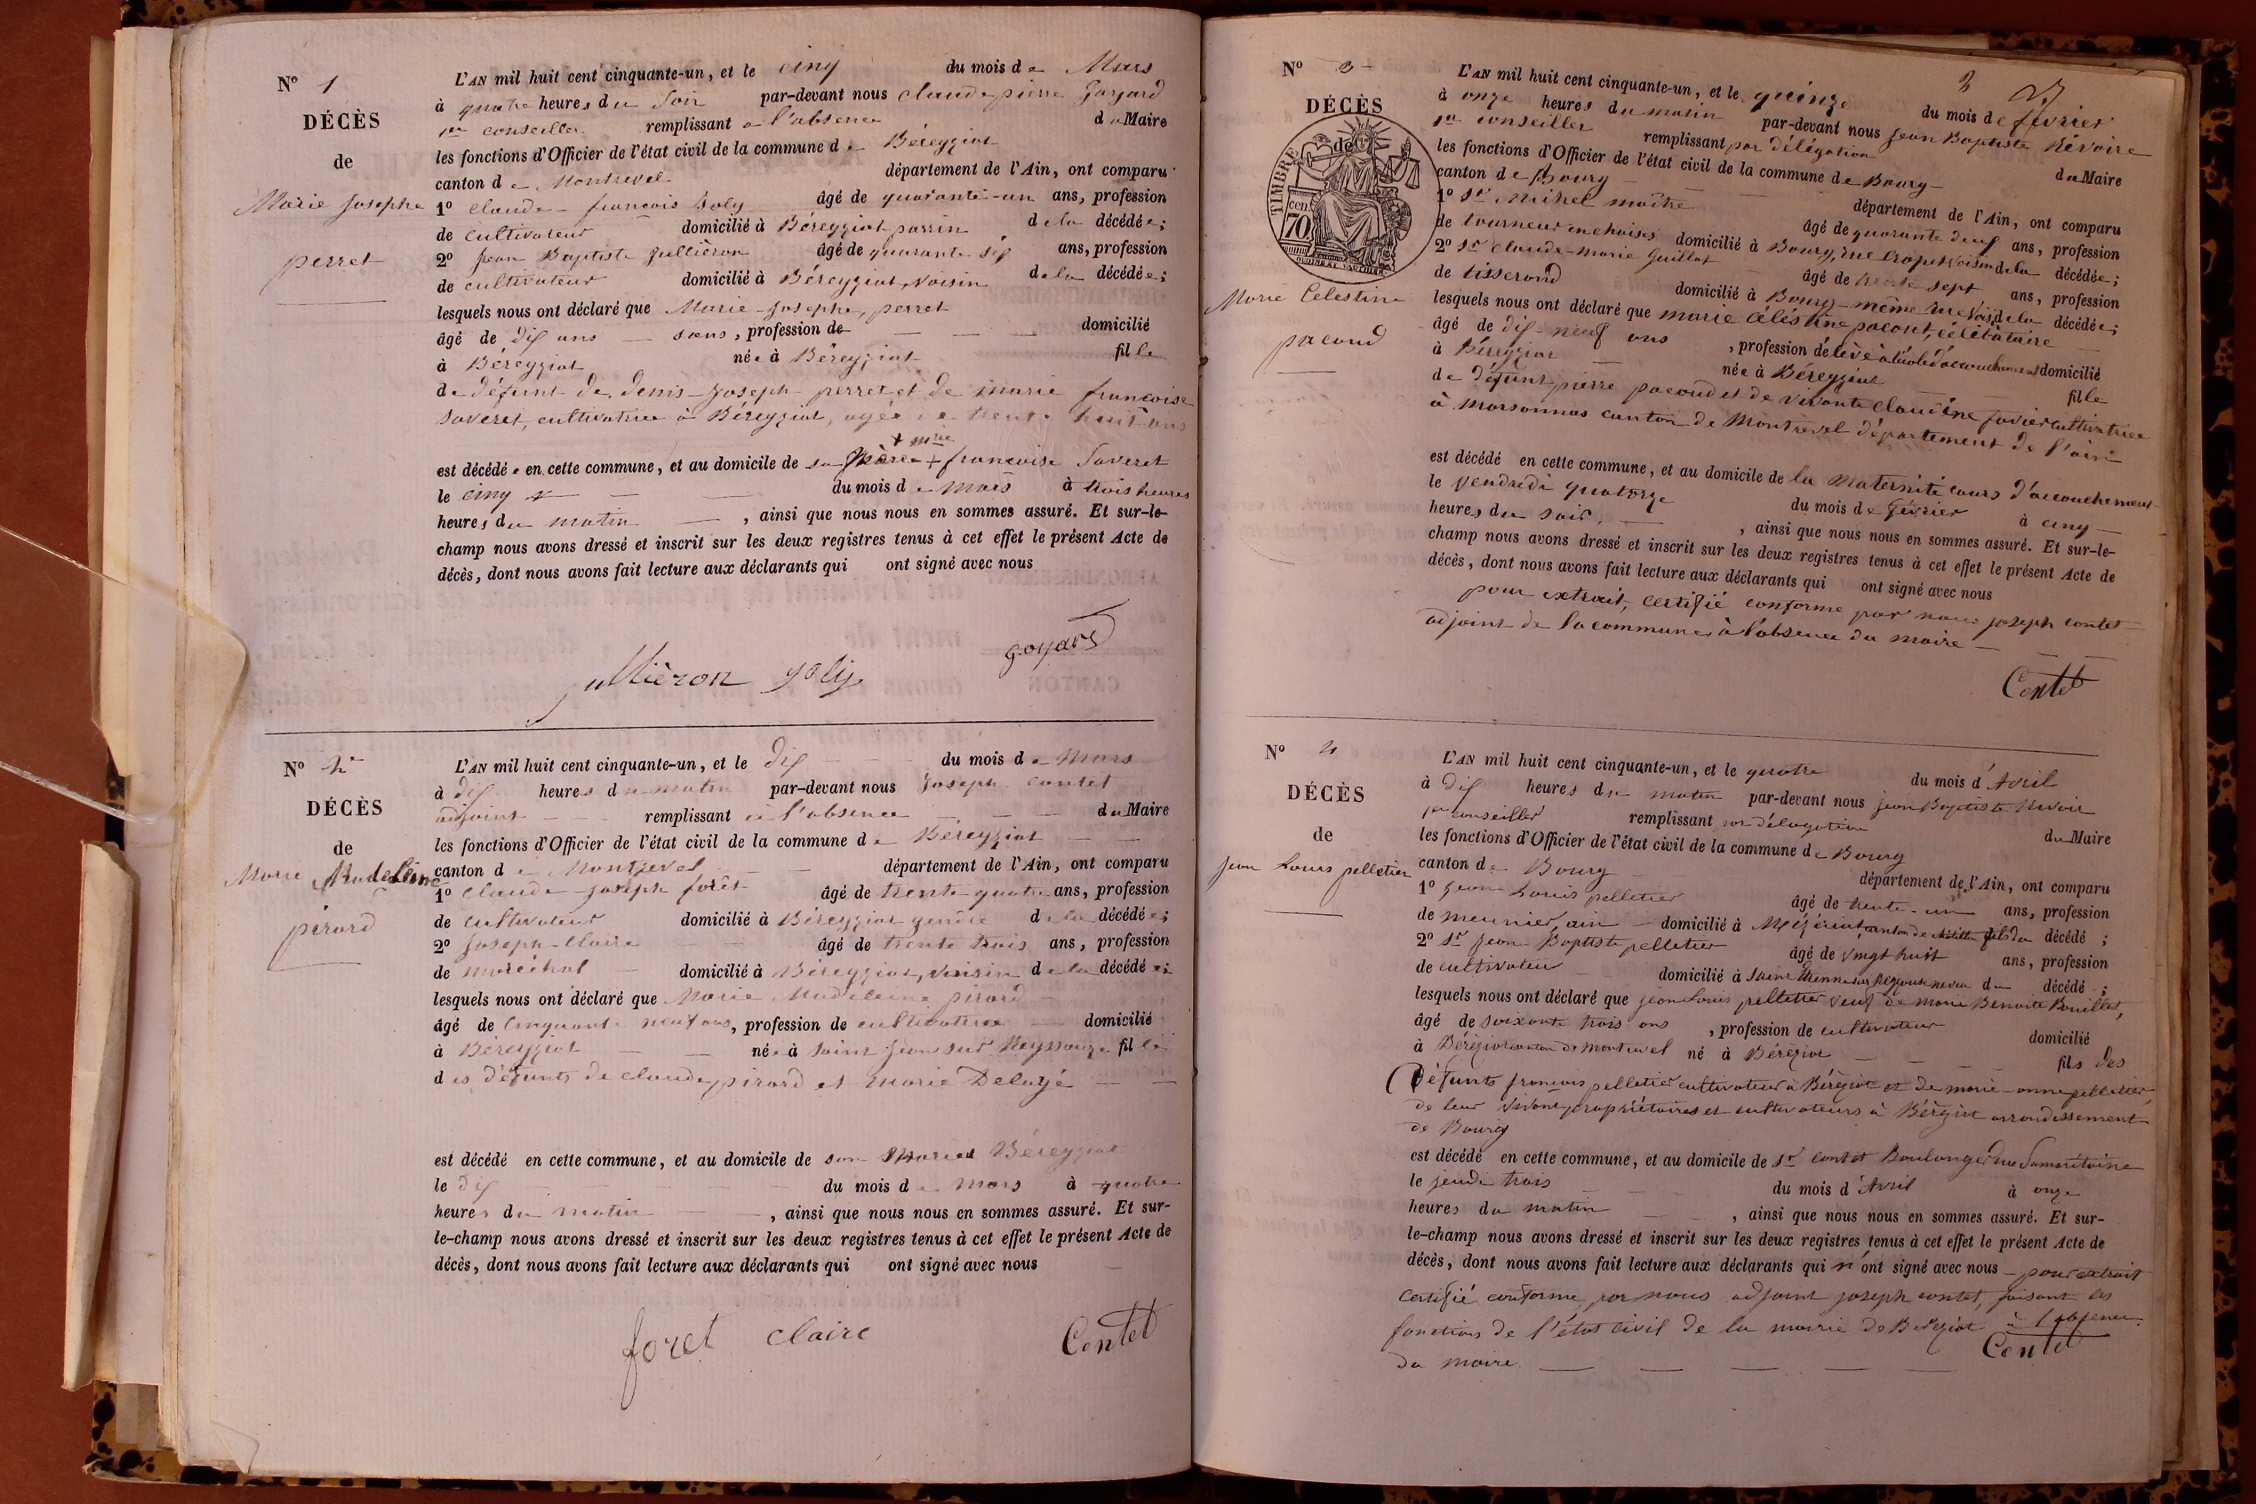 N° 1
DÉCÈS
de
Marie Josephe
perret
L'AN mil huit cent cinquante-un, et le cinq du mois de Mars
à quatre heures du Soir par-devant nous claude pierre Goyard
1er conseiller remplissant à l'absence du Maire
les fonctions d'Officier de l'état civil de la commune de Béreyziat
canton de Montrevel département de l'Ain, ont comparu
1° claude-françois Joly âgé de quarante-un ans, profession
de cultivateur domicilié à Béreyziat parrin de la décédée;
2° jean Baptiste Jullièron âgé de quarante six ans, profession
de cultivateur domicilié à Béreyziat, voisin de la décédée;
lesquels nous ont déclaré que Marie-Josephe, perret
âgé de dix ans sans, profession de domicilié
à Béreyziat née à Béreyziat fille
de défunt de denis-Joseph perret et de marie françoise
Saveret, cultivatrice à Béreyziat, agée de trente huit ans
est décédée en cette commune, et au domicile de sa + françoise Saveret
+ mère
le cinq du mois de mars à trois heures
heures du matin, ainsi que nous nous en sommes assuré. Et sur-le-
champ nous avons dressé et inscrit sur les deux registres tenus à cet effet le présent Acte de
décès, dont nous avons fait lecture aux déclarants qui ont signé avec nous
Jullièron Joly goyard
N° 2
DÉCÈS
de
Marie Madeleine
pirard
L'AN mil huit cent cinquante-un, et le dix du mois de Mars
à dix heures du matin par-devant nous Joseph contet
adjoint remplissant à l'absence du Maire
les fonctions d'Officier de l'état civil de la commune de Béreyziat
canton de Montrevel département de l'Ain, ont comparu
1° claude-joseph forêt âgé de trente quatre ans, profession
de cultivateur domicilié à Béreyziat gendre de la décédée;
2° Joseph-Claire âgé de trente trois ans, profession
de maréchal domicilié à Béreyziat, voisin de la décédée;
lesquels nous ont déclaré que Marie Madeleine pirard
âgé de cinquante neuf ans, profession de cultivatrice domicilié
à Béreyziat née à Saint Jean sur Reyssouze fille
des défunts de claude, pirard et marie Delayé
est décédé en cette commune, et au domicile de son mari à Béreyziat
le dix du mois de mars à quatre
heures du matin, ainsi que nous nous en sommes assuré. Et sur-
le-champ nous avons dressé et inscrit sur les deux registres tenus à cet effet le présent Acte de
décès, dont nous avons fait lecture aux déclarants qui ont signé avec nous
foret claire Contet
N° 3
DÉCÈS
de
TIMBRE
70 cen
Marie Celestine
pacoud
L'AN mil huit cent cinquante-un, et le quinze du mois de février
à onze heures du matin par-devant nous jean Baptiste Révoire
1er conseiller remplissant par délégation du Maire
les fonctions d'Officier de l'état civil de la commune de Bourg
canton de Bourg département de l'Ain, ont comparu
1° Sr Mihel maitre âgé de quarante deux ans, profession
de tourneur en chaises domicilié à Bourg, rue crapet voisin de la décédée;
2° Sr claude-marie Guillot âgé de trente sept ans, profession
de tisserand domicilié à Bourg-même rue Vois. de la décédée;
lesquels nous ont déclaré que marie Céléstine pacout, célibataire
âgé de dix-neuf ans, profession d'élève à l'école d'accouchement domicilié
à Béreyziat née à Béreyziat fille
de défunt, pierre pacoud et de vivante Claudine favier cultivatrice
à Marsonnas canton de Montrevel département de l'ain
est décédé en cette commune, et au domicile de la Maternité cours d'accouchement
le vendredi quatorze du mois de février à cinq
heures du soir, ainsi que nous nous en sommes assuré. Et sur-le-
champ nous avons dressé et inscrit sur les deux registres tenus à cet effet le présent Acte de
décès, dont nous avons fait lecture aux déclarants qui ont signé avec nous
pour extrait, certifié conforme par nous joseph contet
adjoint de la commune à l'absence du maire
Contet
N° 4
DÉCÈS
de
jean Louis pelletier
L'AN mil huit cent cinquante-un, et le quatre du mois d'Avril
à dix heures du matin par-devant nous jean Baptiste Revoir
1er conseiller remplissant par délégation du Maire
les fonctions d'Officier de l'état civil de la commune de Bourg
canton de Bourg département de l'Ain, ont comparu
1° jean Louis pelletier âgé de trente-un ans, profession
de meunier, ain domicilié à Mézériat canton de fils du décédé;
2° Sr jean Baptiste pelletier âgé de vingt huit ans, profession
de cultivateur domicilié à Saint Etienne sur Reyssouze neveu du décédé;
lesquels nous ont déclaré que jean Louis pelletier veuf de marie Benoite Bouillet,
âgé de soixante trois ans, profession de cultivateur domicilié
à Béréziat canton de montrevel né à Béréziat fils des
Défunts françois pelletier cultivateur à Béréziat et de marie-anne pelletier
de leur vivant, propriétaires et cultivateurs à Béréziat arrondissement
de Bourg
est décédé en cette commune, et au domicile de Sr contet Boulanger rue Samaritaine
le jeudi trois du mois d'Avril à onze
heures du matin, ainsi que nous nous en sommes assuré. Et sur-
le-champ nous avons dressé et inscrit sur les deux registres tenus à cet effet le présent Acte de
décès, dont nous avons fait lecture aux déclarants qui n'ont signé avec nous - pour extrait
certifié conforme par nous adjoint joseph contet, faisant les
fonctions de l'état civil de la mairie de Béréziat à l'absence
du maire.
Contet